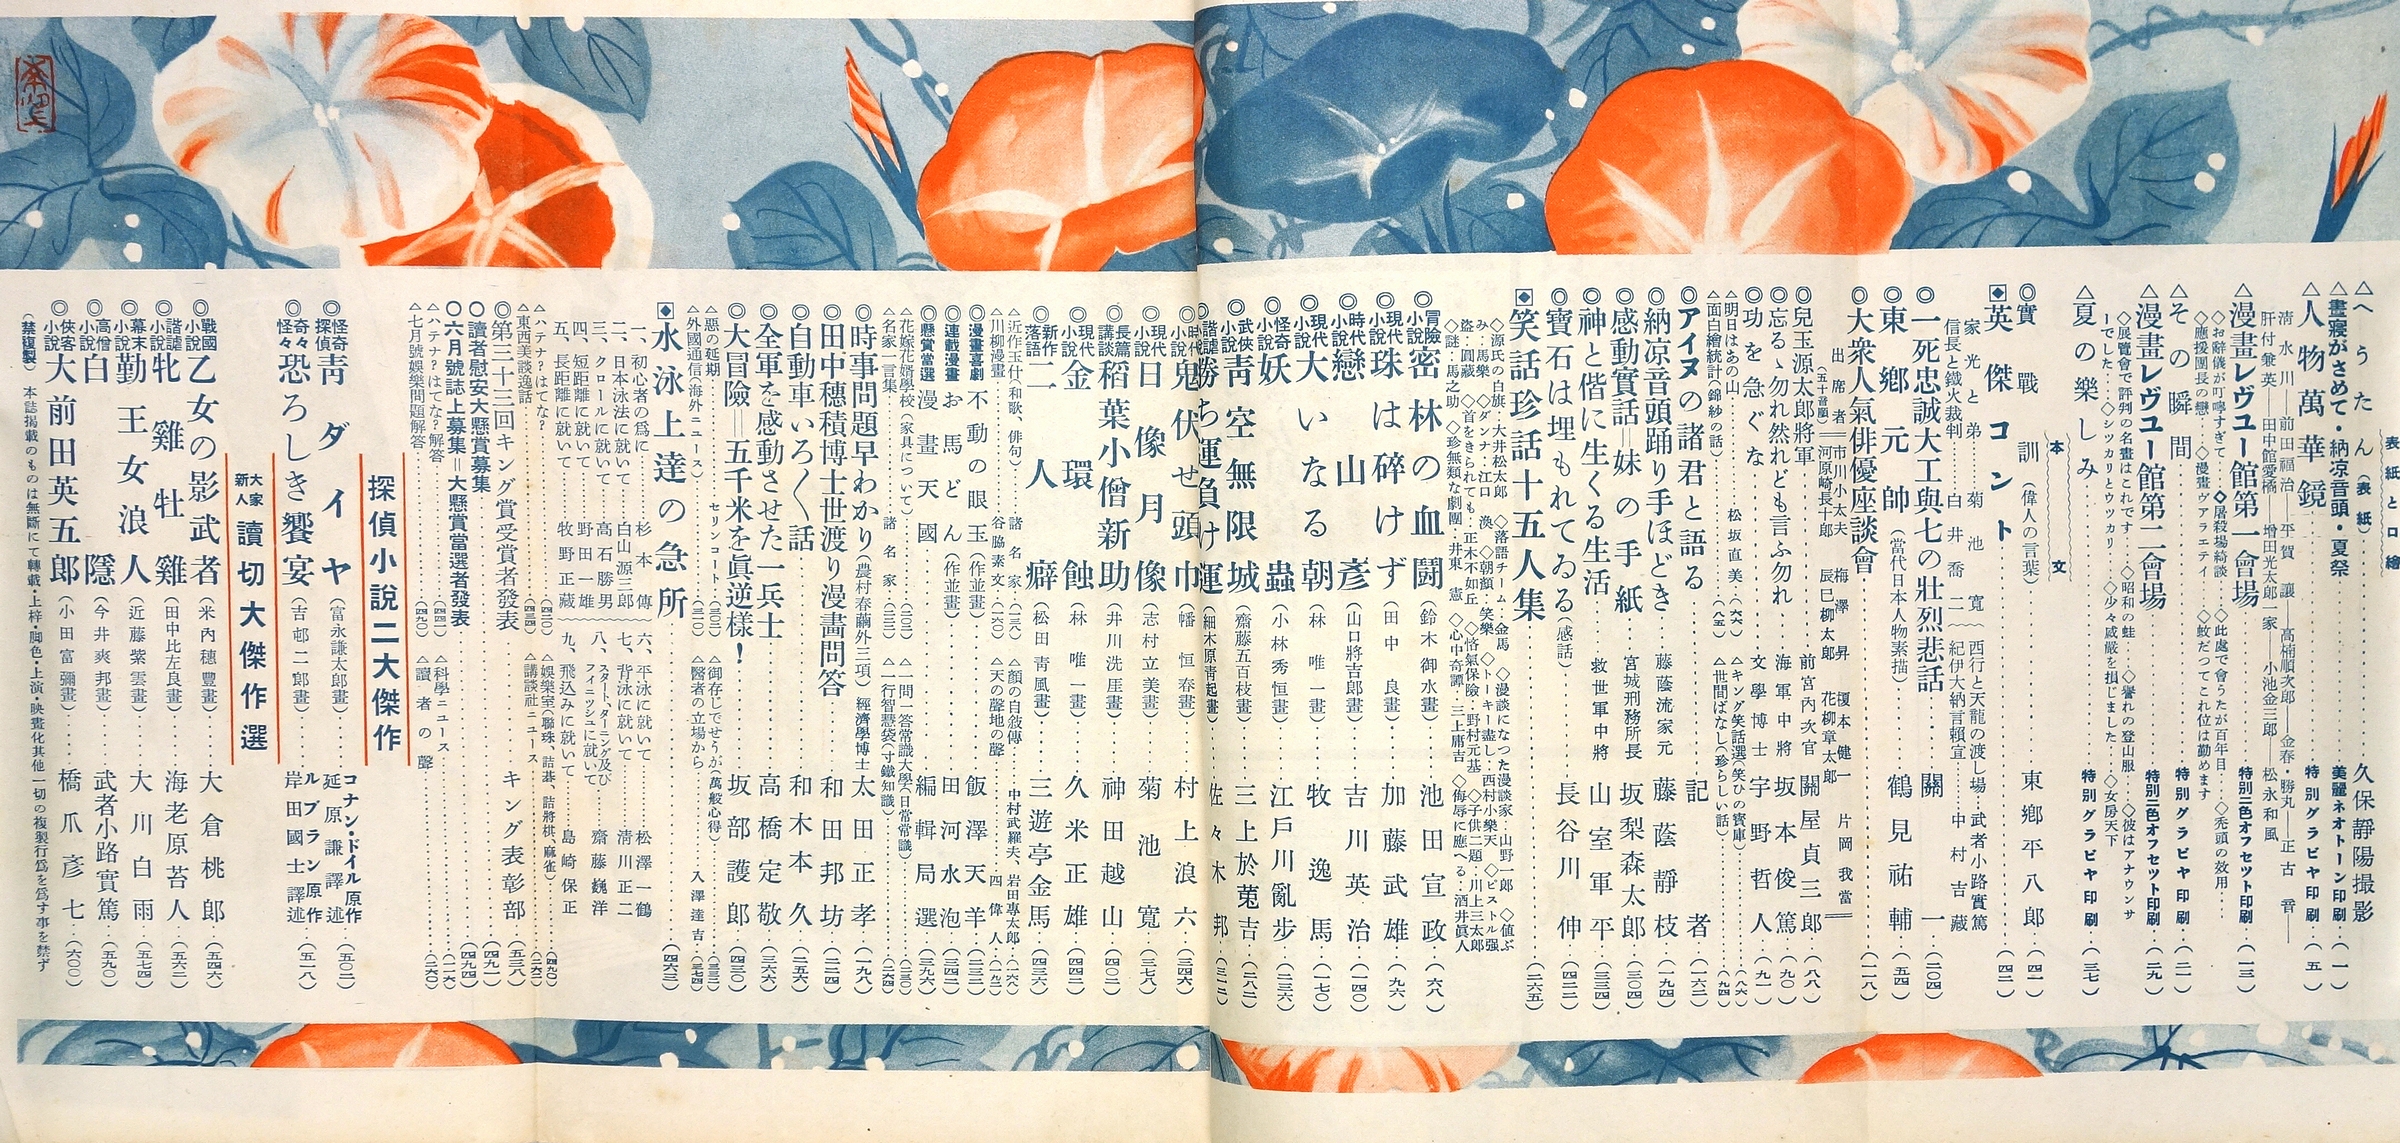 表紙と口繪
△へうたん（表紙）久保靜陽撮影
△晝寢がさめて・納凉音頭・夏祭 美麗ネオトーン印刷（一）
△人物萬華鏡 特別グラビヤ印刷（五）
清水川——前田福治——平賀讓——高楠順次郎——金春・勝丸——正古
肝付兼英——田中館愛橘——增田光太郎一家——小池金三郎——松永和風
△漫畫レヴユー館第一會場 特別二色オフセツト印刷（一三）
◇お辭儀が叮嚀すぎて ◇屠殺場綺談 ◇此處で會うたが百年目 ◇禿頭の效用
◇應援團長の戀 ◇漫畫ヴアラエテイ ◇蚊だつてこれ位は勤めます
△その瞬間 特別グラビヤ印刷（二一）
△漫畫レヴユー館第二會場 特別二色オフセツト印刷（二九）
◇展覽會で評判の名畫はこれです ◇昭和の蛙 ◇譽れの登山服 ◇彼はアナウンサ
ーでした ◇シツカリとウツカリ ◇少々威嚴を損じました ◇女房天下
△夏の樂しみ 特別グラビヤ印刷（三七）
本文
◎實戰訓（偉人の言葉）東鄕平八郎（四一）
◈英傑コント（四二）
家光と弟 菊池寬 西行と天龍の渡し場 武者小路實篤
信長と鐵火裁判 白井喬二 紀伊大納言賴宣 中村吉藏
◎一死忠誠大工與七の壯烈悲話 關一（二〇四）
◎東鄕元帥（當代日本人物素描）鶴見祐輔（五四）
◎大衆人氣俳優座談會（一一八）
出席者（五十音順）市川小太夫 梅澤昇 榎本健一 片岡我當
河原崎長十郎 辰巳柳太郎 花柳章太郎
◎兒玉源太郎將軍 前宮內次官 關屋貞三郎（八八）
◎忘るゝ勿れ然れども言ふ勿れ 海軍中將 坂本俊篤（九〇）
◎功を急ぐな 文學博士 宇野哲人（九一）
△明日はあの山 松坂直美（六六） △キング笑話選（笑ひの寶庫）（八六）
△面白繪統計（錦紗の話）（八五） △世間ばなし（珍らしい話）（九四）
◎アイヌの諸君と語る 記者（一六二）
◎納凉音頭踊り手ほどき 藤蔭流家元 藤蔭靜枝（一九四）
◎感動實話＝妹の手紙 宮城刑務所長 坂梨森太郎（三〇四）
◎神と偕に生くる生活 救世軍中將 山室軍平（三三四）
◎寶石は埋もれてゐる（感話）長谷川伸（四二二）
◈笑話珍話十五人集（二六五）
◇源氏の白旗・大井松太郎 ◇落語チーム・金馬 ◇漫談になつた漫談家・山野一郎 ◇値ぶ
み・馬樂 ◇ダンナ・江口渙 ◇朝顏・笑樂 ◇トーキー盡し・西村小樂天 ◇ピストル强
盜・圓藏 ◇首をきられても・正木不如丘 ◇恪氣保險・野村元基 ◇子供二題・川上三太郎
◇謎・馬之助 ◇珍無類な劇團・井東憲 ◇心中奇譚・三上庸吉 ◇侮辱に應へる・酒井眞人
◎冒險小說 密林の血鬪（鈴木御水畫）池田宣政（六八）
◎現代小說 珠は碎けず（田中良畫）加藤武雄（九六）
◎時代小說 戀山彥（山口將吉郎畫）吉川英治（一四〇）
◎現代小說 大いなる朝（林唯一畫）牧逸馬（一七〇）
◎怪奇小說 妖蟲（小林秀恒畫）江戶川亂步（二三六）
◎武俠小說 靑空無限城（齋藤五百枝畫）三上於菟吉（二八二）
◎諧謔小說 勝ち運負け運（細木原靑起畫）佐々木邦（三一二）
◎時代小說 鬼伏せ頭巾（幡恒春畫）村上浪六（三四六）
◎現代小說 日像月像（志村立美畫）菊池寬（三七八）
◎長篇講談 稻葉小僧新助（井川洗厓畫）神田越山（四〇二）
◎現代小說 金環蝕（林唯一畫）久米正雄（四四二）
◎新作落語 二人癖（松田靑風畫）三遊亭金馬（四三六）
△近作玉什（和歌、俳句）諸名家（一三八） △顏の自敍傳 中村武羅夫、岩田專太郎（一六八）
△川柳漫畫 谷脇素文（一六〇） △天の聲地の聲 四偉人（一九二）
◎漫畫喜劇 不動の眼玉（作並畫）飯澤天羊（三三二）
◎連載漫畫 お馬どん（作並畫）田河水泡（三四二）
◎懸賞當選 漫畫天國 編輯局選（三九六）
△花嫁花婿學校（家具について）（三〇三） △一問一答常識大學（日常常識）（二三〇）
△名家一言集 諸名家（三三三） △一行智慧袋（寸鐵知識）（二六四）
◎時事問題早わかり（農村春繭外三項）經濟學博士 太田正孝（一九八）
◎田中穗積博士世渡り漫畵問答 和田邦坊（二二四）
◎自動車いろ〱話 和木本久（二五六）
◎全軍を感動させた一兵士 高橋定敬（三六六）
◎大冒險＝五千米を眞逆樣！ 坂部護郎（四三〇）
△惡の延期 セリンコート（三〇三） △御存じでせうが（萬般心得）（三三三）
△外國通信（海外ニュース） △醫者の立場から 入澤達吉（三七四）
◈水泳上達の急所（四六三）
一、初心者の爲に 杉本傳 六、平泳に就いて 松澤一鶴
二、日本泳法に就いて 白山源三郎 七、背泳に就いて 淸川正二
三、クロールに就いて 高石勝男 八、スタート、ターニング及びフイニツシユに就いて 齋藤巍洋
四、短距離に就いて 野田一雄 九、飛込みに就いて 島崎保正
五、長距離に就いて 牧野正藏
△ハテナ？はてな？（四三〇） △娛樂室（聯珠、詰碁、詰將棋、麻雀）（四九〇）
△東西美談逸話 △講談社ニュース（二六二）
◎第三十三回キング賞受賞者發表 キング表彰部（五三八）
◎讀者慰安大懸賞募集（四九一）
◎六月號誌上募集＝大懸賞當選者發表（四九四）
△ハテナ？はてな？解答（四四二） △科學ニュース（二一八）
△七月號娛樂問題解答（四九〇） △讀者の聲（二六〇）
探偵小說二大傑作
◎怪奇探偵 靑ダイヤ（富永謙太郎畫）コナン・ドイル原作 延原謙譯述（五〇二）
◎奇々怪々 恐ろしき饗宴（吉邨二郎畫）ルブラン原作 岸田國士譯述（五一八）
大家新人 讀切大傑作選
◎戰國小說 乙女の影武者（米內穗豐畫）大倉桃郎（五四六）
◎諧謔小說 牝雞牡雞（田中比左良畫）海老原苔人（五六二）
◎幕末小說 勤王女浪人（近藤紫雲畫）大川白雨（五七四）
◎高僧小說 白隱（今井爽邦畫）武者小路實篤（五九〇）
◎俠客小說 大前田英五郎（小田富彌畫）橋爪彥七（六〇〇）
（禁複製） 本誌揭載のものは無斷にて轉載・上梓・脚色・上演・映畫化其他一切の複製行爲を爲す事を禁ず